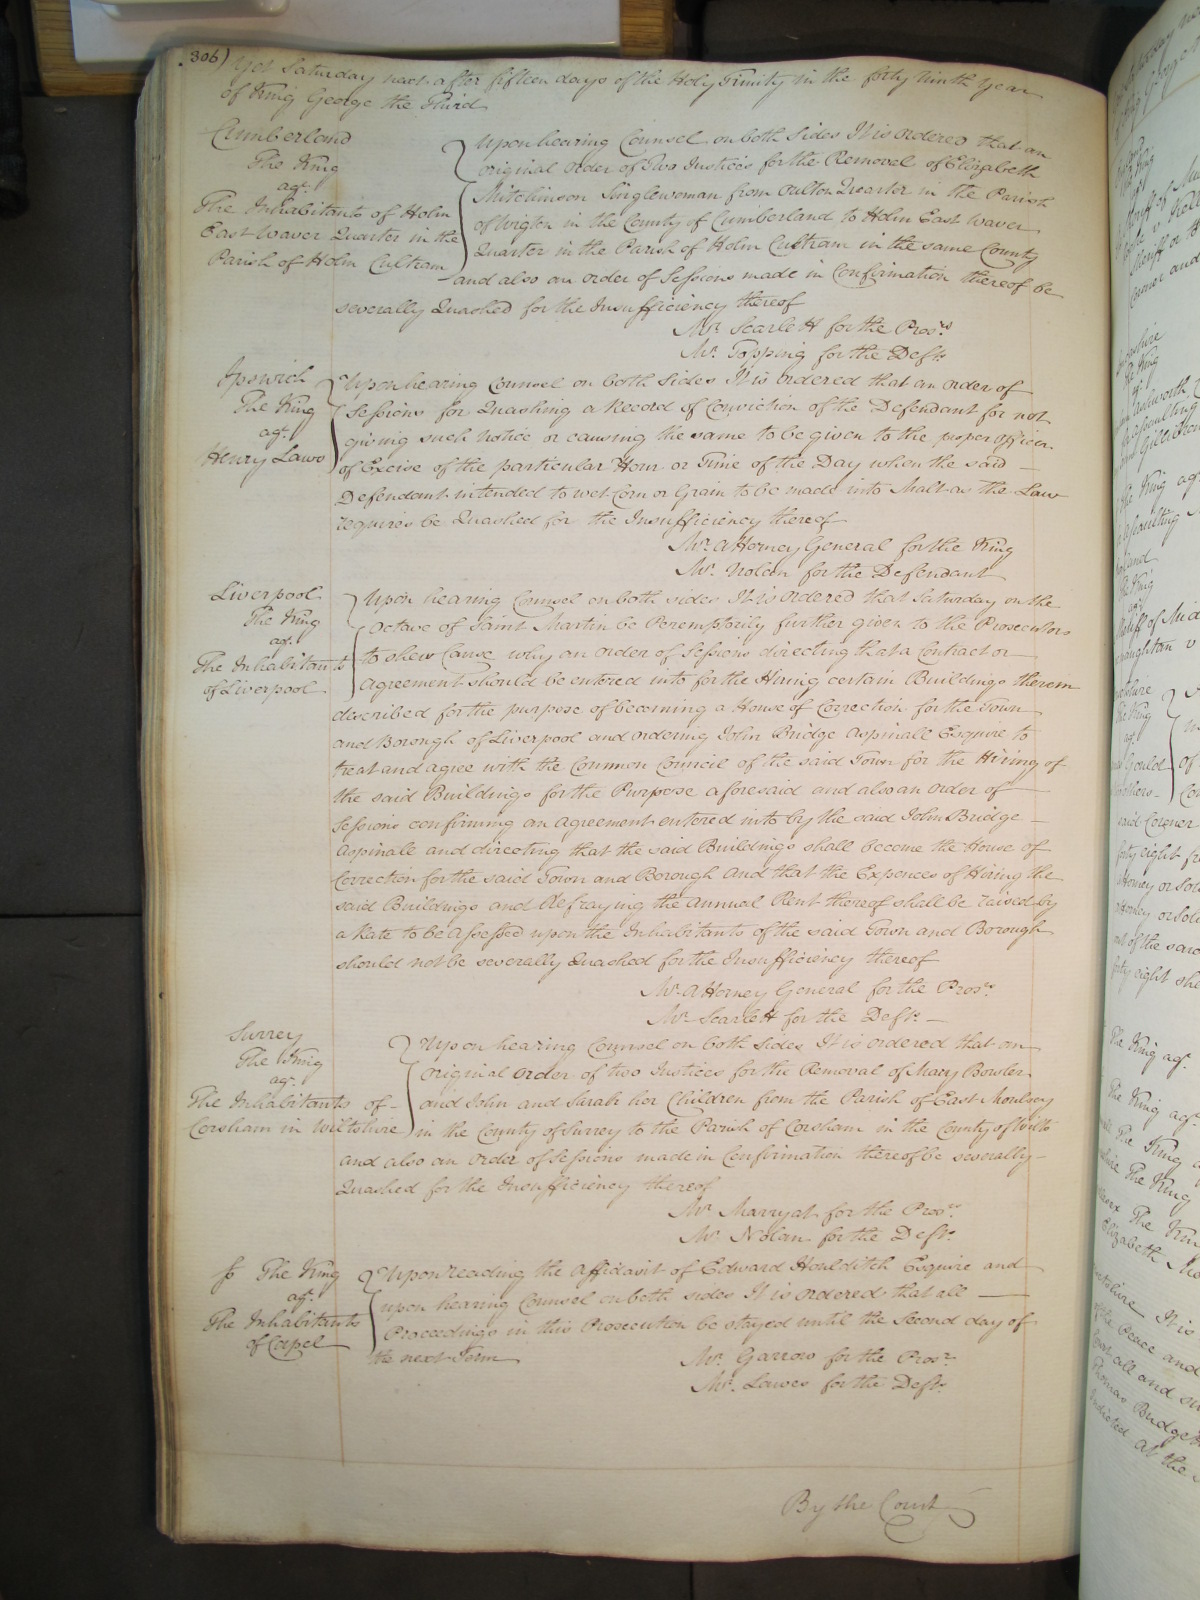 306)
Yet Saturday next after fifteen days of the Holy Trinity in the forty ninth Year
of King George the Third
Cumberland
The King
agt.
The Inhabitants of Holm
East Waver Quarter in the
Parish of Holm Cultram
Upon hearing Counsel on both Sides It is ordered that an
original Order of Two Justices for the Removal of Elizabeth
Mitchinson Singlewoman from Oulton Quarter in the Parish
of Wigton in the County of Cumberland to Holm East Waver
Quarter in the Parish of Holm Cultram in the same County
and also an order of Sessions made in Confirmation thereof be
severally Quashed for the Insufficiency thereof
Mr. Scarlett for the Prosrs
Mr. Topping for the Defts.
Ipswich
The King
agt.
Henry Laws
Upon hearing Counsel on both Sides It is ordered that an order of
Sessions for Quashing a Record of Conviction of the Defendant for not
giving such notice or causing the same to be given to the proper officer
of Excise of the particular Hour or Time of the Day when the said
Defendant intended to wet Corn or Grain to be made into Malt as the Law
requires be Quashed for the Insufficiency thereof
Mr. Attorney General for the King
Mr. Nolan for the Defendant
Liverpool
The King
agt.
The Inhabitants
of Liverpool
Upon hearing Counsel on both sides It is Ordered that Saturday on the
Octave of Saint Martin be Peremptorily further given to the Prosecutors
to shew Cause why an order of Sessions directing that a Contract or
Agreement should be entered into for the Hiring certain Buildings therein
described for the purpose of becoming a House of Correction for the Town
and Borough of Liverpool and ordering John Bridge Aspinall Esquire to
treat and agree with the Common Council of the said Town for the Hiring of
the said Buildings for the Purpose aforesaid and also an order of
Sessions confirming an Agreement entered into by the said John Bridge
Aspinall and directing that the said Buildings shall become the House of
Correction for the said Town and Borough And that the Expences of Hiring the
said Buildings and Defraying the Annual Rent thereof shall be raised by
a Rate to be assessed upon the Inhabitants of the said Town and Borough
should not be severally Quashed for the Insufficiency thereof
Mr. Attorney General for the Prosrs.
Mr. Scarlett for the Defts.
Surrey
The King
agt.
The Inhabitants of
Corsham in Wiltshire
Upon hearing Counsel on both Sides It is ordered that an
Original Order of two Justices for the Removal of Mary Bowler
and John and Sarah her Children from the Parish of East Moulsey
in the County of Surrey to the Parish of Corsham in the County of Wilts
and also an Order of Sessions made in Confirmation thereof be severally
Quashed for the Insufficiency thereof
Mr. Marryat for the Prosrs.
Mr. Nolan for the Defts.
The King
agt.
The Inhabitants
of Capel
Upon reading the Affidavit of Edward Houlditch Esquire and
upon hearing Counsel on both sides It is ordered that all
Proceedings in this Prosecution be stayed until the Second day of
the next Term
Mr. Garrow for the Prosr.
Mr. Lawes for the Defts.
By the Court